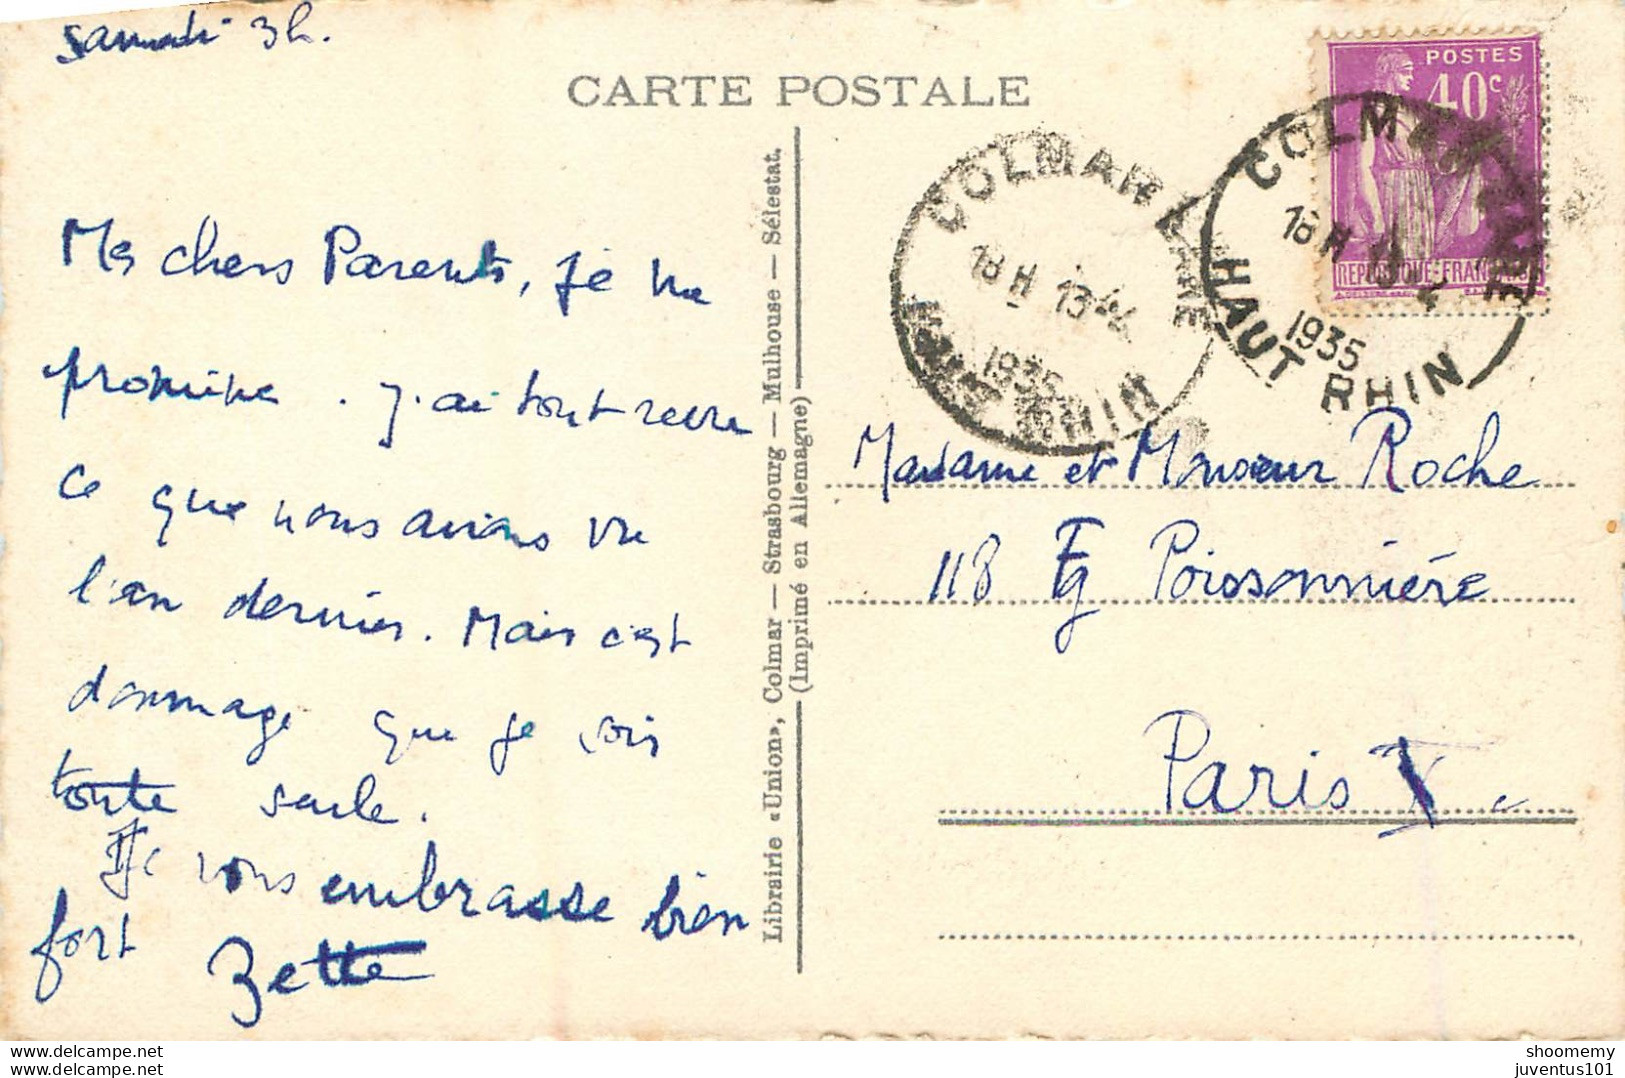 samedi 3h.
CARTE POSTALE
Mes chers Parents, je me
promène. J'ai tout revu
ce que nous avions vu
l'an dernier. Mais c'est
dommage que je sois
toute seule.
Je vous embrasse bien
fort Zette
Librairie «Union», Colmar — Strasbourg — Mulhouse — Sélestat.
(Imprimé en Allemagne)
POSTES
40c
REPUBLIQUE FRANÇAISE
COLMAR GARE
18 H 13-4
1935
HAUT RHIN
COLMAR GARE
18 H 13-4
1935
HAUT RHIN
Madame et Monsieur Roche
118 Fg Poissonnière
Paris X.
Delcampe.net
More on www.delcampe.net
shoomemy
juventus101